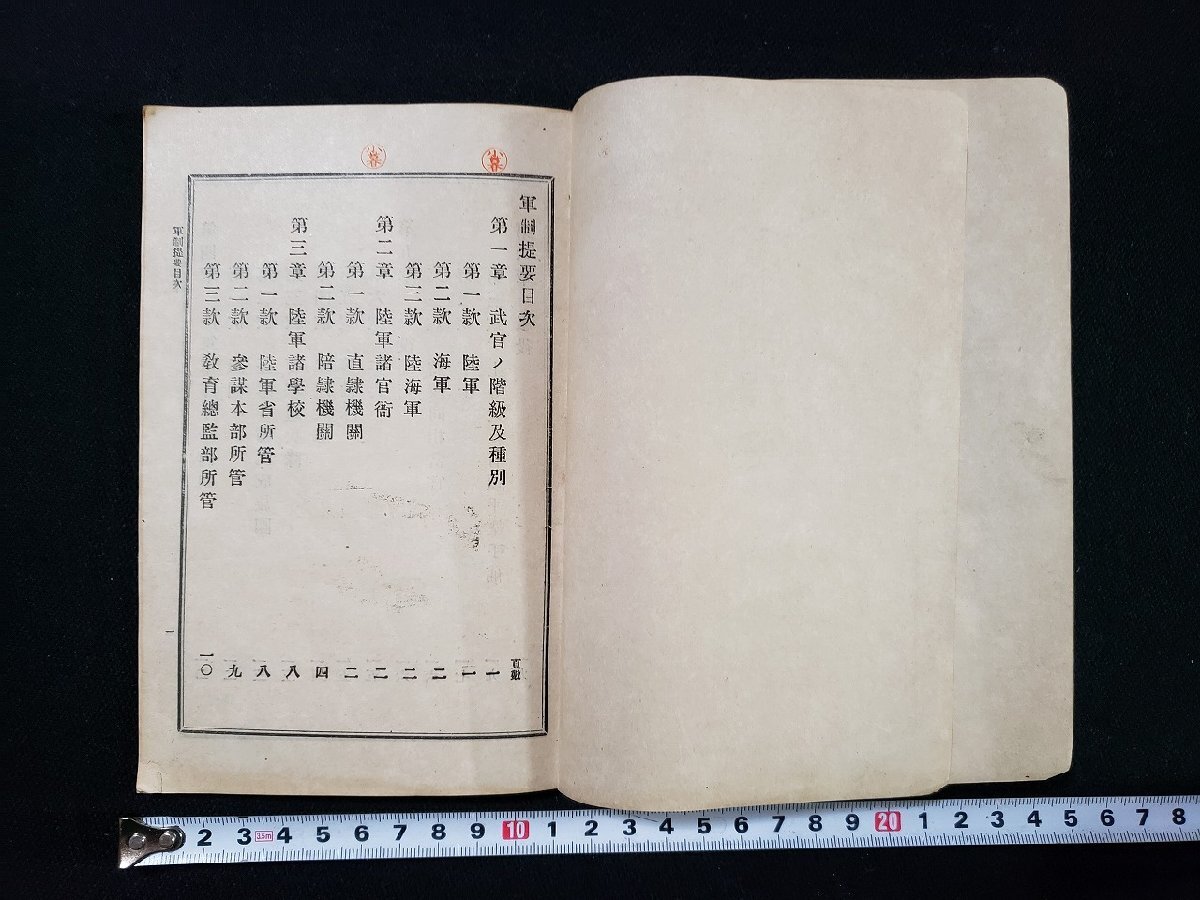 軍制提要目次
頁數
第一章 武官ノ階級及種別 一
第一款 陸軍 一
第二款 海軍 二
第三款 陸海軍 二
第二章 陸軍諸官衙 二
第一款 直隷機關 二
第二款 陪隷機關 四
第三章 陸軍諸學校 八
第一款 陸軍省所管 八
第二款 參謀本部所管 九
第三款 敎育總監部所管 一〇
軍制提要目次
一
2 3 3.5m 4 5 6 7 8 9 10 1 2 3 4 5 6 7 8 9 20 1 2 3 4 5 6 7 8